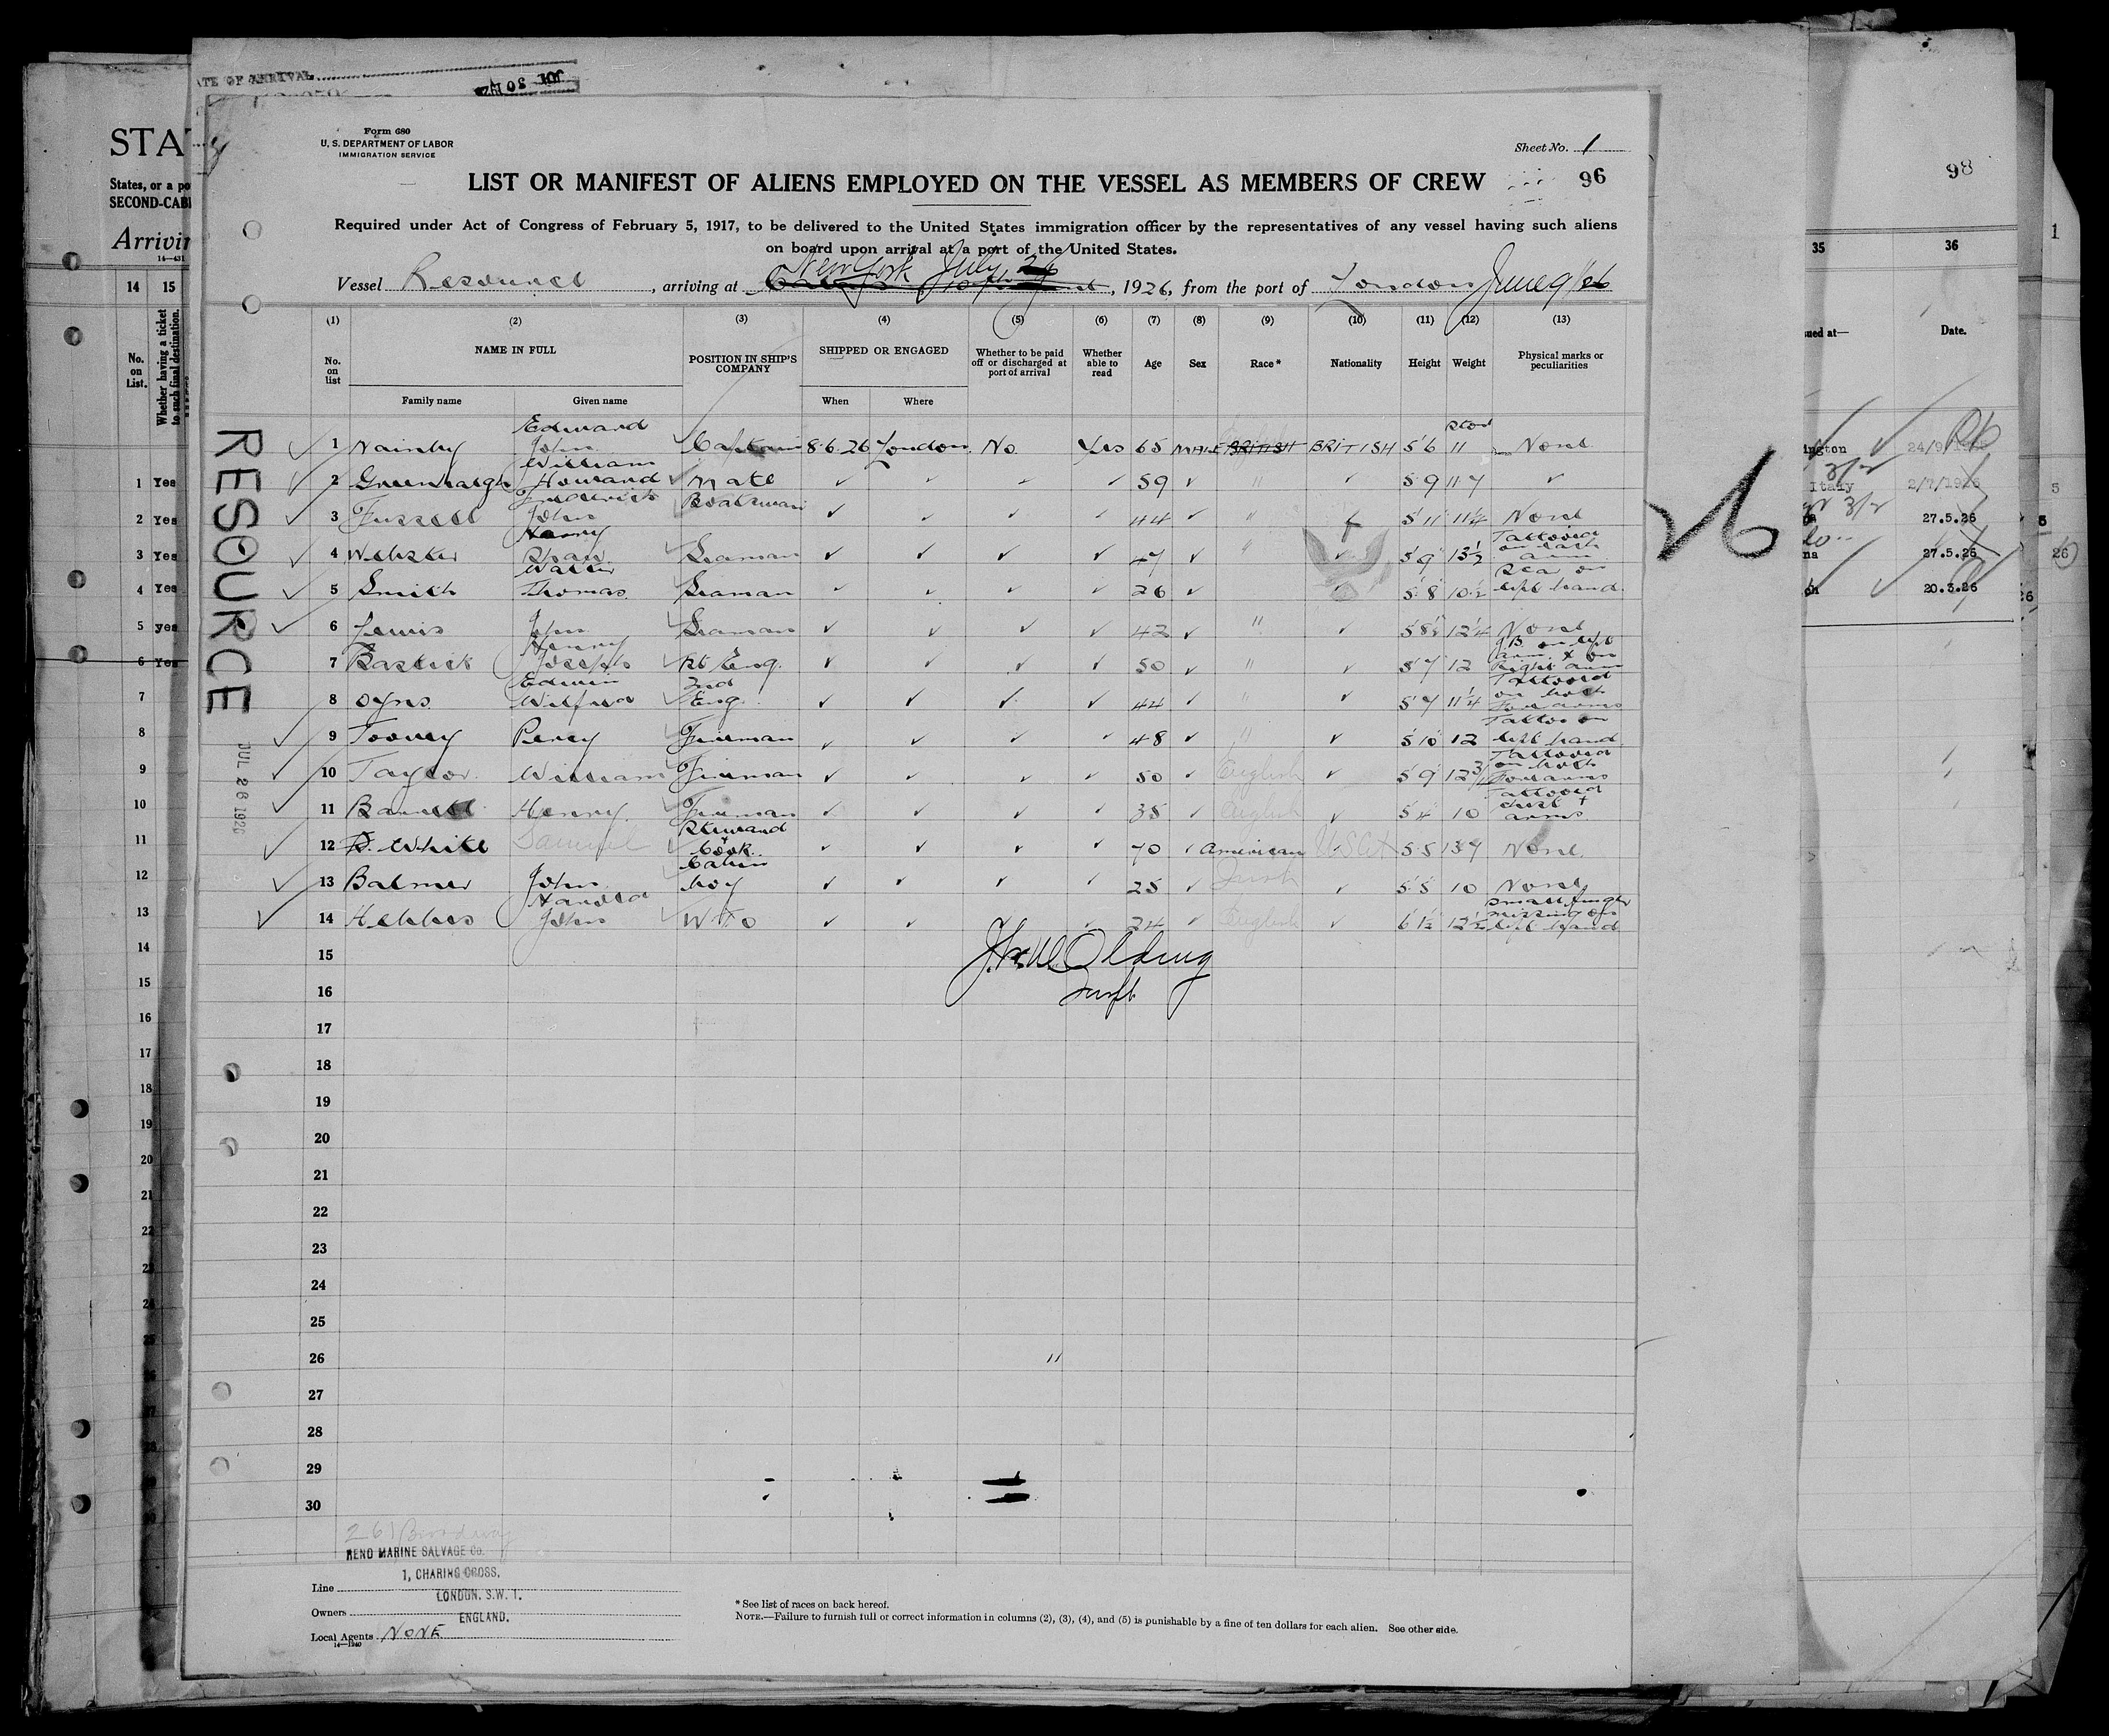 DATE OF ARRIVAL
Form 680
U. S. DEPARTMENT OF LABOR
IMMIGRATION SERVICE
Sheet No. 1
LIST OR MANIFEST OF ALIENS EMPLOYED ON THE VESSEL AS MEMBERS OF CREW
96
Required under Act of Congress of February 5, 1917, to be delivered to the United States immigration officer by the representatives of any vessel having such aliens
on board upon arrival at a port of the United States.
Vessel Resource, arriving at New York July 26, 1926, from the port of London June 9/26
(1) (2) (3) (4) (5) (6) (7) (8) (9) (10) (11) (12) (13)
No. on list
NAME IN FULL
Family name
Given name
POSITION IN SHIP'S COMPANY
SHIPPED OR ENGAGED
When
Where
Whether to be paid off or discharged at port of arrival
Whether able to read
Age
Sex
Race*
Nationality
Height
Weight
Physical marks or peculiarities
1 Nainby Edward John Captain 8.6.26 London No Yes 65 MALE BRITISH BRITISH 5'6 11 None
2 Greenhalgh William Howard Mate ✓ ✓ ✓ ✓ 59 ✓ " 5 9 11 7 ✓
3 Fussell Frederick John Boatswain ✓ ✓ ✓ ✓ 44 ✓ " ✓ 5 11 11 1/4 None
4 Webster Harry Seaman ✓ ✓ ✓ ✓ 47 ✓ " ✓ 5'9" 13 1/2 Tattooed on arm
5 Smith Walter Thomas Seaman ✓ ✓ ✓ ✓ 26 ✓ 5'8 10 1/2 on left hand
6 Lewis John Seaman ✓ ✓ ✓ ✓ 42 ✓ " ✓ 5 8 1/2 12 1/4 None
7 Henry Joseph Eng. ✓ ✓ ✓ ✓ 50 ✓ " ✓ 5'7 12 J.B. on left arm + on Right arm
8 Edwin Wilfred 2nd Eng. ✓ ✓ ✓ ✓ 44 ✓ " ✓ 5'7 11 1/4 Tattooed on both Forearms
9 Toovey Percy Fireman ✓ ✓ ✓ ✓ 48 ✓ " ✓ 5 10 12 Tattoo on left hand
10 Taylor William Fireman ✓ ✓ ✓ ✓ 50 ✓ English ✓ 5'9" 12 3/4 Tattooed on both Forearms
11 Henry Fireman ✓ ✓ ✓ ✓ 35 ✓ English ✓ 5'4" 10 Tattooed chest + arms
12 White Samuel Steward + Cook ✓ ✓ ✓ ✓ 70 ✓ American USCit 5'5 None
13 Balmer John Cabin boy ✓ ✓ ✓ ✓ 25 ✓ Irish ✓ 5'5 10 None
14 Harold John W T O ✓ ✓ ✓ 24 ✓ English ✓ 6 1 1/2 12 1/2 small finger missing on left hand
15
16
17
18
19
20
21
22
23
24
25
26
27
28
29
30
Olding
RESOURCE
JUL 26 1926
26
261 Broadway
RENO MARINE SALVAGE Co.
1, CHARING CROSS,
LONDON. S.W. 1.
ENGLAND.
Line
Owners
Local Agents NONE
14—1240
* See list of races on back hereof.
NOTE.—Failure to furnish full or correct information in columns (2), (3), (4), and (5) is punishable by a fine of ten dollars for each alien. See other side.
STAT
States, or a po
SECOND-CAB
Arrivin
14—431
14 15
No. on List.
Whether having a ticket to such final destination.
1 Yes
2 Yes
3 Yes
4 Yes
5 yes
6 Yes
7
8
9
10
11
12
13
14
15
16
17
18
19
20
21
22
23
98
35 36
ued at—
Date.
ington
Italy 2/7/1926
27.5.26
na 27.5.26
20.3.26
1
5
26